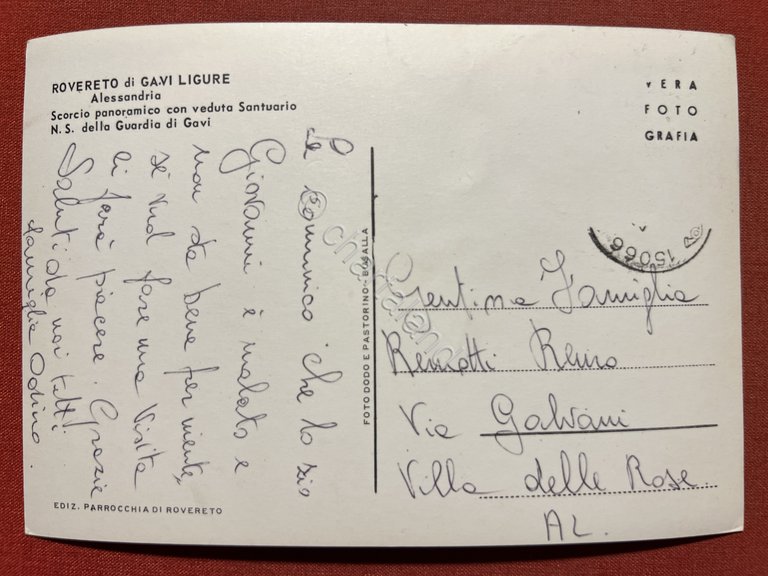 ROVERETO di GAVI LIGURE
Alessandria
Scorcio panoramico con veduta Santuario
N. S. della Guardia di Gavi
VERA
FOTO
GRAFIA
Le comunico che lo zio
Giovanni è malato e
non sta bene per niente,
se vuol fare una visita
ci farà piacere. Grazie
Saluti da noi tutti
famiglia Odino.
FOTO DODO E PASTORINO - BUSALLA
15066
Gentil.ma Famiglia
Remotti Remo
Via Galvani
Villa delle Rose
AL.
EDIZ. PARROCCHIA DI ROVERETO